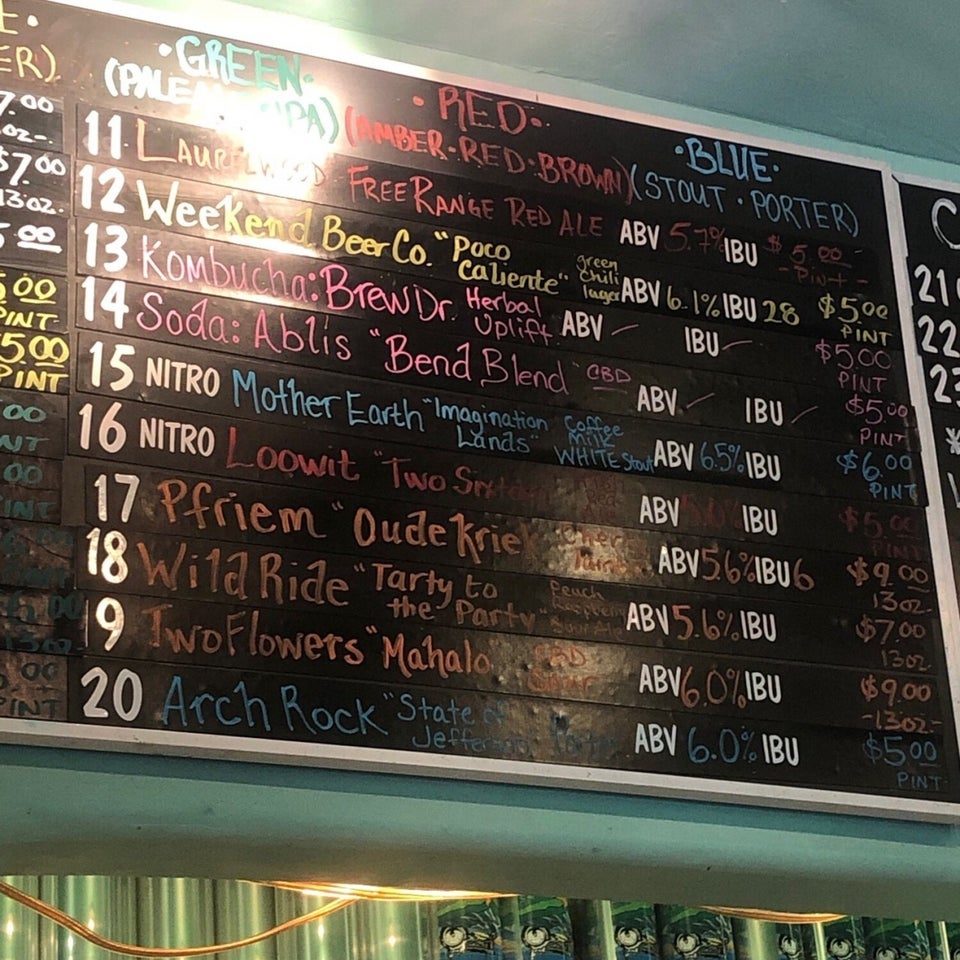 ER)
7.00
oz-
$7.00
13oz.
5.00
5.00
PINT
5.00
PINT
·GREEN·
(PALE IPA)
·RED·
(AMBER·RED·BROWN)
·BLUE·
(STOUT·PORTER)
11 LAURELWOOD FREE RANGE RED ALE ABV 5.7% IBU $5.00 -PINT-
12 Weekend Beer Co. "Poco Caliente" green Chili lager ABV 6.1% IBU 28 $5.00 PINT
13 Kombucha: Brew Dr. Herbal Uplift ABV — IBU — $5.00 PINT
14 Soda: Ablis "Bend Blend" CBD ABV — IBU — $5.00 PINT
15 NITRO Mother Earth "Imagination Lands" Coffee Milk WHITE Stout ABV 6.5% IBU $6.00 PINT
16 NITRO Loowit "Two Sixteen ABV 5.0% IBU $5.00 PINT
17 Pfriem "Oude Kriek Cherry ABV 5.6% IBU 6 $9.00 13oz.
18 Wild Ride "Tarty to the Party" Peach Raspberry Sour Ale ABV 5.6% IBU $7.00 13oz.
19 Two Flowers "Mahalo" CBD ABV 6.0% IBU $9.00 -13oz-
20 Arch Rock "State of Jefferson Porter ABV 6.0% IBU $5.00 PINT
C
21
22
23